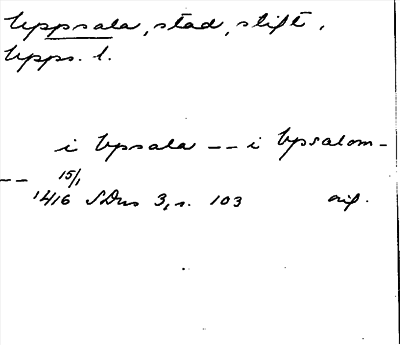 Uppsala, stad, stift,
Upps. l.
i Upsala -- i Upsalom-
-- 15/1
1416 SDns 3, s. 103 orig.